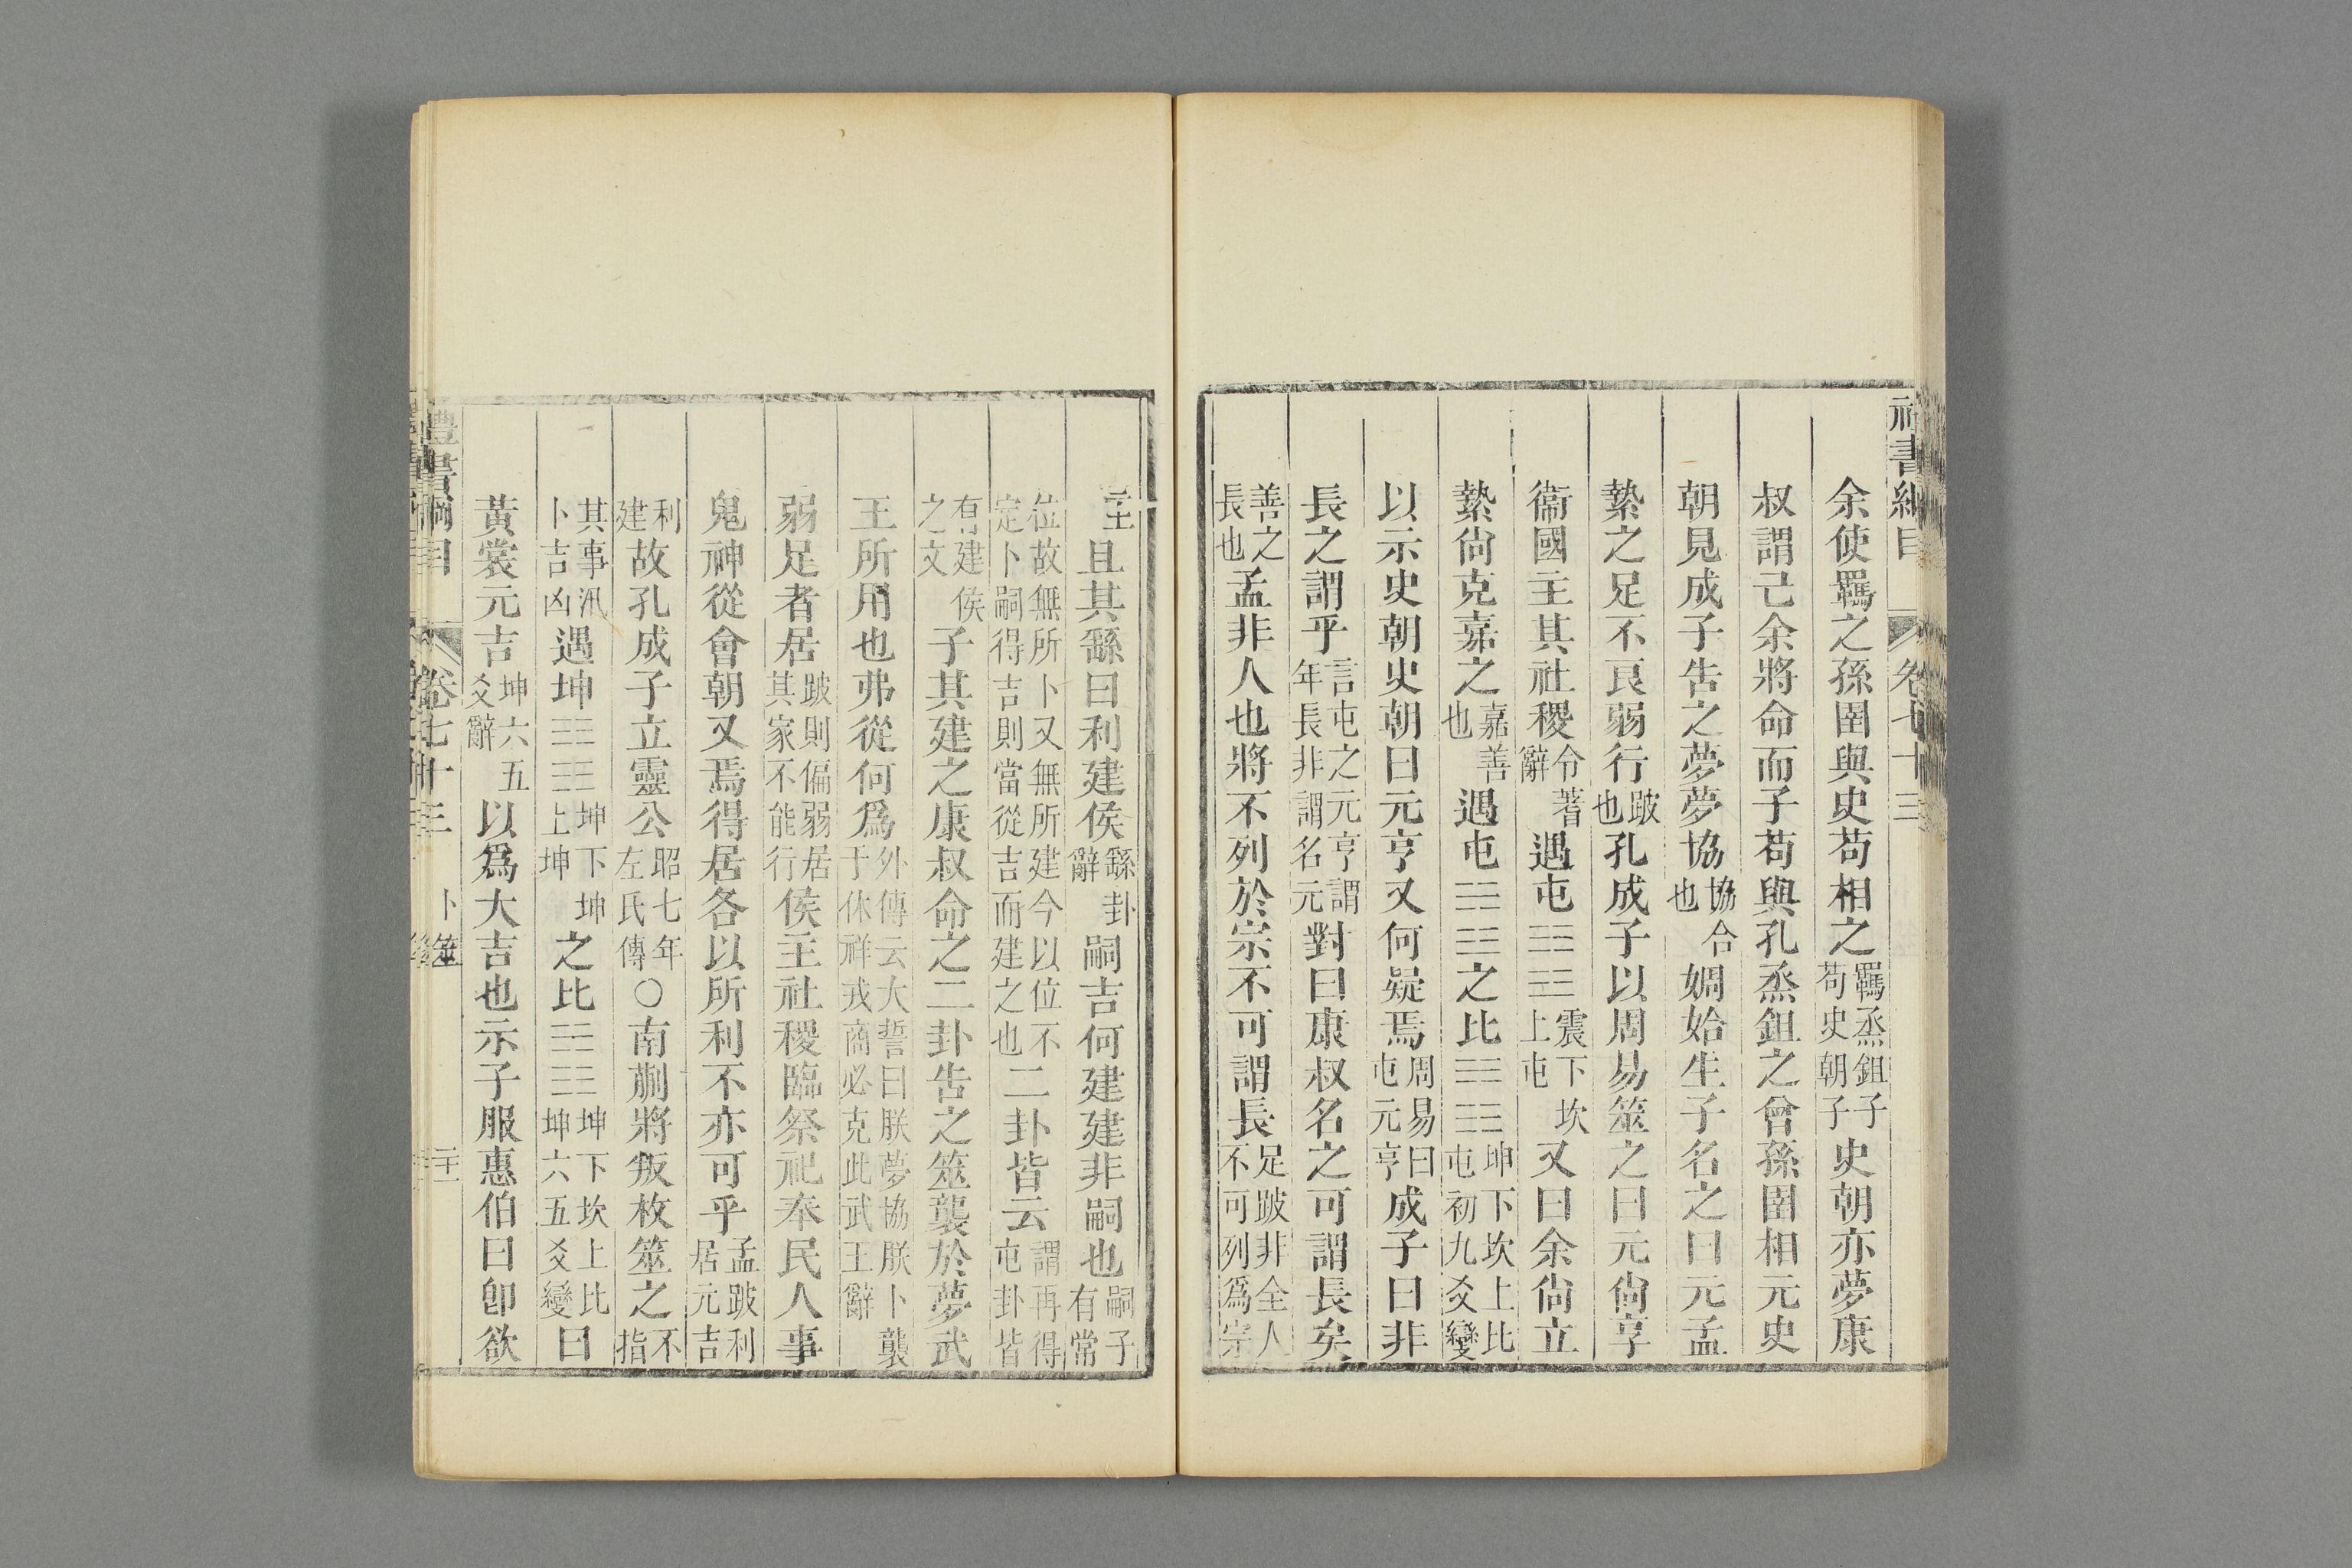 禮書綱目 卷七十三
余使羈之孫圉與史苟相之羈烝鉏子苟史朝子史朝亦夢康
叔謂己余將命而子苟與孔烝鉏之曾孫圉相元史
朝見成子告之夢夢協協合也婤姶生子名之曰元孟
縶之足不良弱行跛也孔成子以周易筮之曰元尙享
衞國主其社稷令蓍辭遇屯☳☵震下坎上屯又曰余尙立
縶尙克嘉之嘉善也遇屯☳☵之比☷☵坤下坎上比屯初九爻變
以示史朝史朝曰元亨又何疑焉周易曰屯元亨成子曰非
長之謂乎言屯之元亨謂年長非謂名元對曰康叔名之可謂長矣
善之長也孟非人也將不列於宗不可謂長足跛非全人不可列爲宗
主且其繇曰利建侯繇卦辭嗣吉何建建非嗣也嗣子有常
位故無所卜又無所建今以位不定卜嗣得吉則當從吉而建之也二卦皆云謂再得屯卦皆
有建侯之文子其建之康叔命之二卦告之筮襲於夢武
王所用也弗從何爲外傳云大誓曰朕夢協朕卜襲于休祥戎商必克此武王辭
弱足者居跛則偏弱居其家不能行侯主社稷臨祭祀奉民人事
鬼神從會朝又焉得居各以所利不亦可乎孟跛利居元吉
利建故孔成子立靈公昭七年左氏傳○南蒯將叛枚筮之不指
其事汎卜吉凶遇坤☷☷坤下坤上坤之比☷☵坤下坎上比坤六五爻變曰
黃裳元吉坤六五爻辭以爲大吉也示子服惠伯曰卽欲
禮書綱目 卷七十三 卜筮 二十一